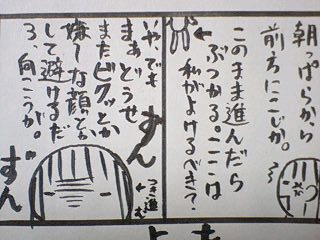 朝っぱらから
前方にこじか。
このまま進んだら
ぶつかる。ここは
私がよけるべき?
いや、でも
まぁどうせ
またビクッとか
嫌〜な顔とか
して避けるだ
ろ、向こうが。
ずん
ずん